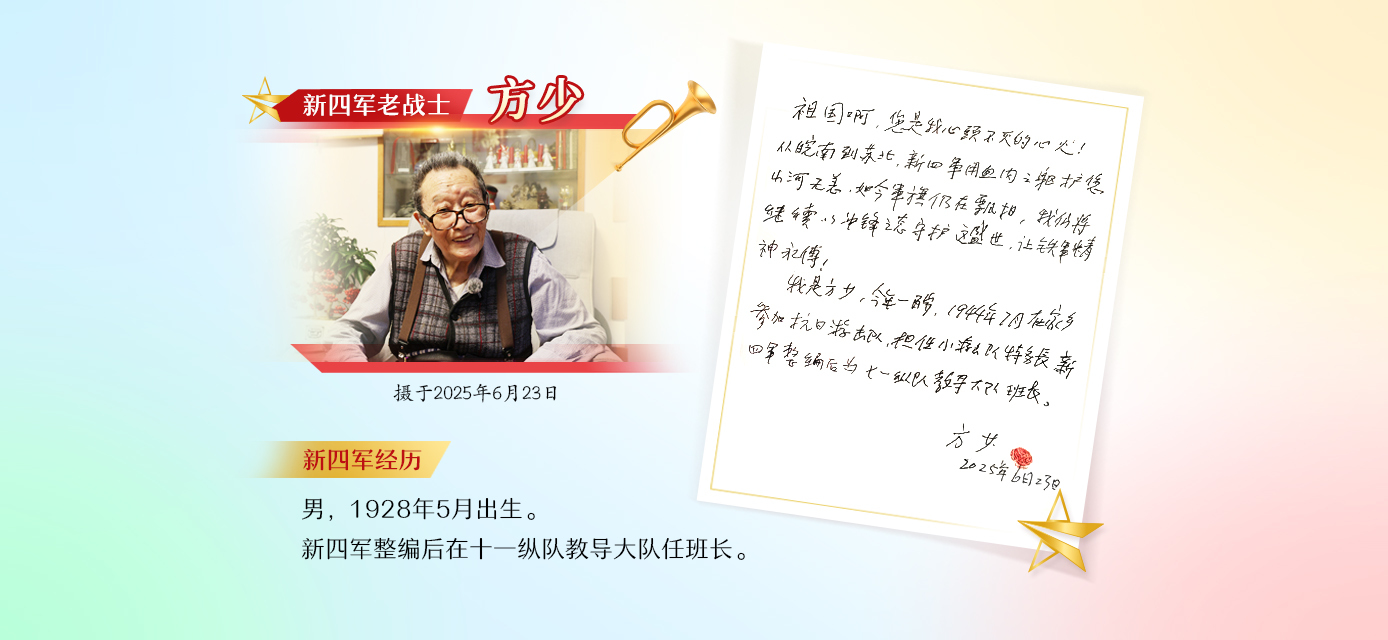 新四军老战士 方少
摄于2025年6月23日
新四军经历
男，1928年5月出生。
新四军整编后在十一纵队教导大队任班长。
祖国啊，您是我心头不灭的心火！
从皖南到苏北，新四军用血肉之躯护您
山河无恙，如今军旗仍在飘扬，我们将
继续以冲锋之态守护这盛世，让铁军精
神永传！
我是方少，今年一百，1944年7月在家乡
参加抗日游击队，担任小队队长
四军整编后为十一纵队教导大队班长。
方少
2025年6月23日